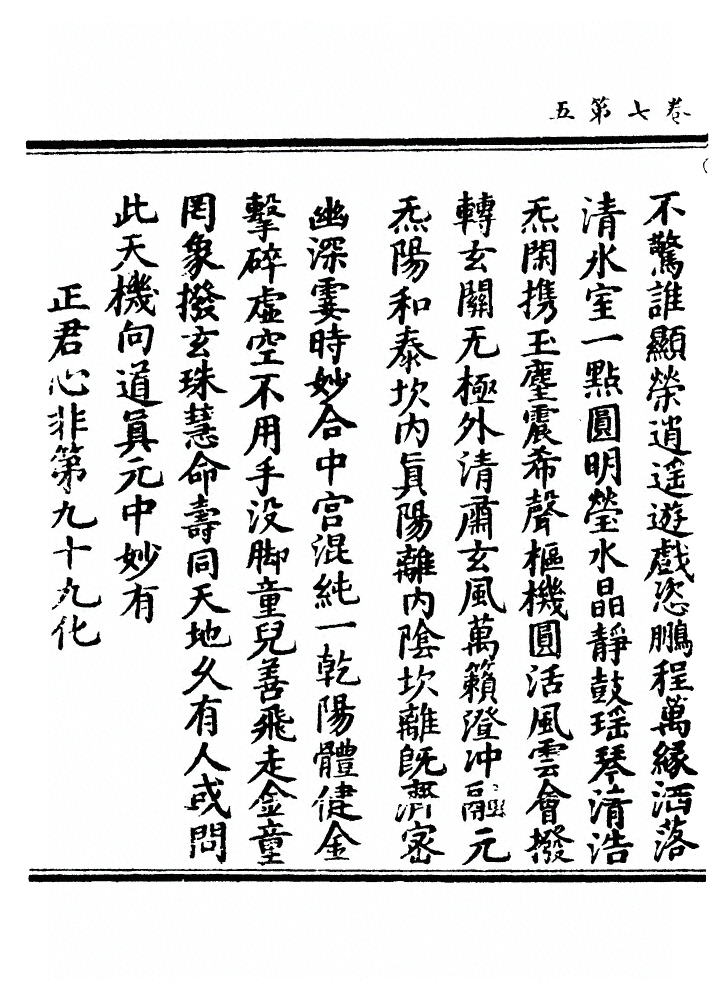 卷七第五
不驚誰顯榮逍遥遊戲恣鵬程萬緣洒落
清氷室一點圓明瑩水晶靜鼓瑶琴淯浩
炁閑携玉麈震希聲樞機圓活風雲會撥
轉玄關无極外清肅玄風萬籟澄冲融元
炁陽和泰坎内眞陽離内隂坎離旣濟宻
幽深霎時妙合中宫混純一乾陽體健金
擊碎虚空不用手没脚童兒善飛走金童
罔象撥玄珠慧命壽同天地久有人或問
此天機向道眞元中妙有
正君心非第九十九化